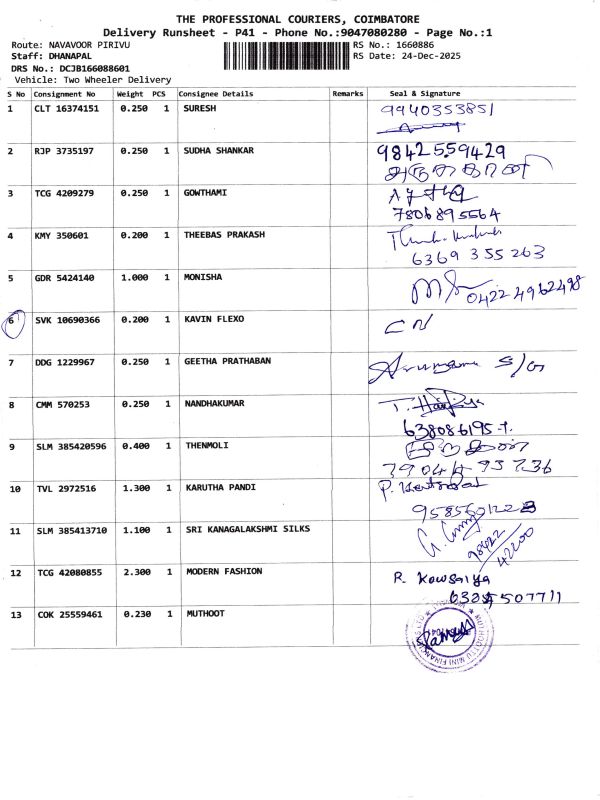 THE PROFESSIONAL COURIERS, COIMBATORE
Delivery Runsheet - P41 - Phone No.:9047080280 - Page No.:1
Route: NAVAVOOR PIRIVU
RS No.: 1660886
Staff: DHANAPAL
RS Date: 24-Dec-2025
DRS No.: DCJB166088601
Vehicle: Two Wheeler Delivery
S No Consignment No Weight PCS Consignee Details Remarks Seal & Signature
1 CLT 16374151 0.250 1 SURESH 9940353851
2 RJP 3735197 0.250 1 SUDHA SHANKAR 9842559429
3 TCG 4209279 0.250 1 GOWTHAMI
7806895564
4 KMY 350601 0.200 1 THEEBAS PRAKASH
6369 355 263
5 GDR 5424140 1.000 1 MONISHA
0422 4962498
6 SVK 10690366 0.200 1 KAVIN FLEXO CN
7 DDG 1229967 0.250 1 GEETHA PRATHABAN
S/O
8 CMM 570253 0.250 1 NANDHAKUMAR
9 SLM 385420596 0.400 1 THENMOLI
10 TVL 2972516 1.300 1 KARUTHA PANDI
11 SLM 385413710 1.100 1 SRI KANAGALAKSHMI SILKS
98422
42200
12 TCG 42080855 2.300 1 MODERN FASHION R. Kowsalya
13 COK 25559461 0.230 1 MUTHOOT